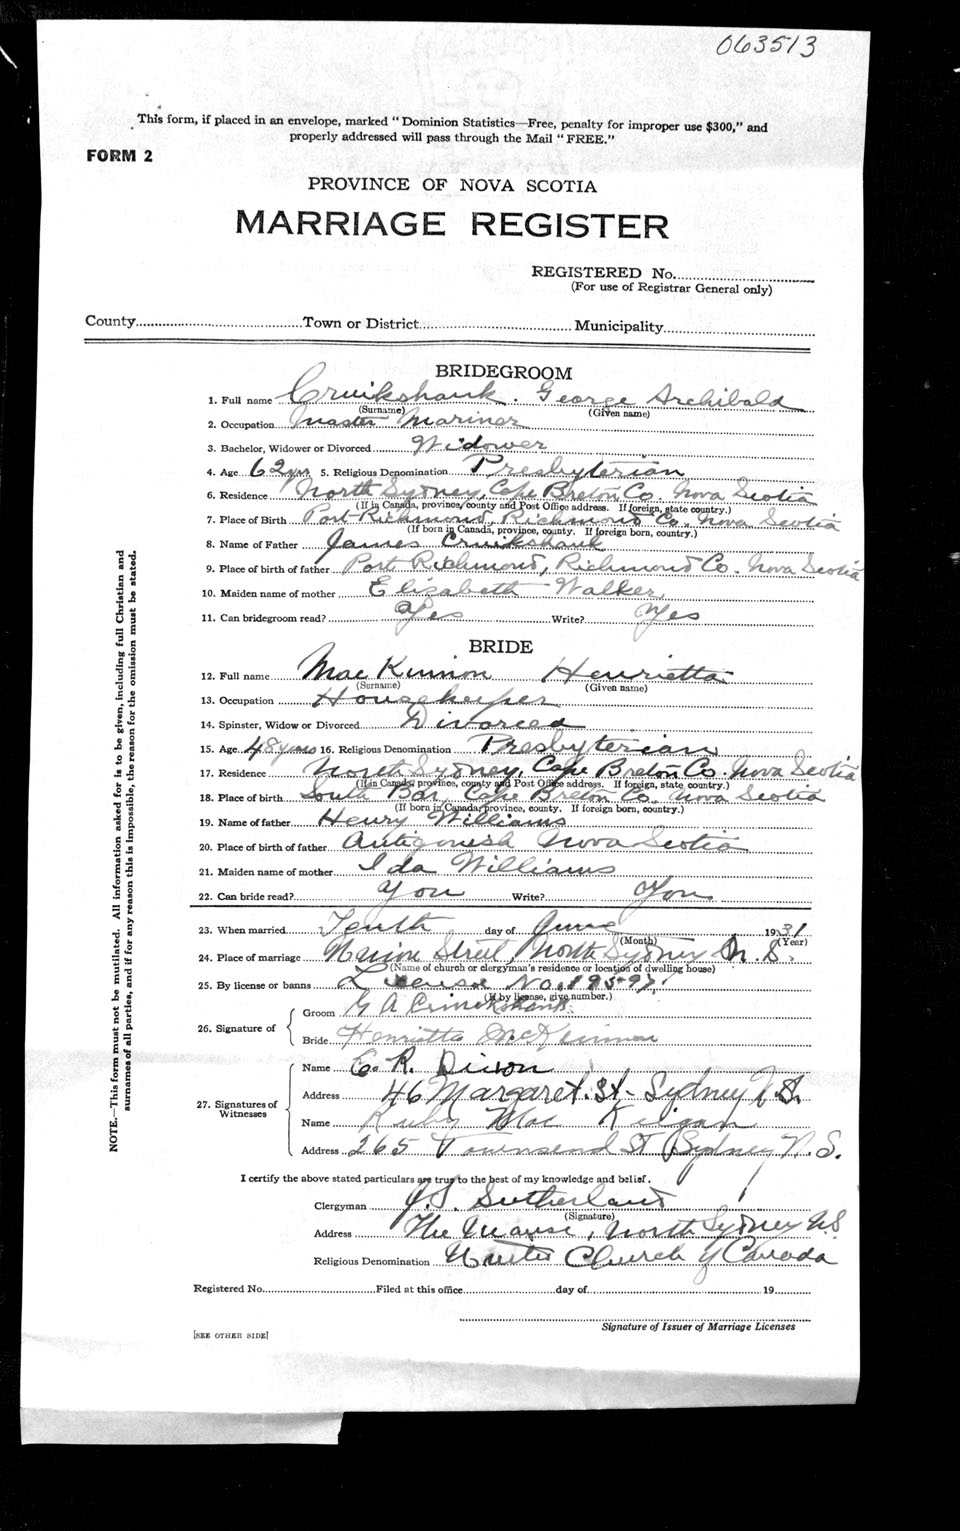 063513
This form, if placed in an envelope, marked "Dominion Statistics—Free, penalty for improper use $300," and
properly addressed will pass through the Mail "FREE."
FORM 2
PROVINCE OF NOVA SCOTIA
MARRIAGE REGISTER
REGISTERED No.
(For use of Registrar General only)
County Town or District Municipality
BRIDEGROOM
1. Full name Cruikshank. George Archibald
(Surname) (Given name)
2. Occupation Master Mariner
3. Bachelor, Widower or Divorced Widower
4. Age 62 yrs 5. Religious Denomination Presbyterian
6. Residence North Sydney, Cape Breton Co. Nova Scotia
(If in Canada, province, county and Post Office address. If foreign, state country.)
7. Place of Birth Port Richmond, Richmond Co. Nova Scotia
(If born in Canada, province, county. If foreign born, country.)
8. Name of Father James Cruikshank
9. Place of birth of father Port Richmond, Richmond Co. Nova Scotia
10. Maiden name of mother Elizabeth Walker
11. Can bridegroom read? Yes Write? Yes
BRIDE
12. Full name MacKinnon Henrietta
(Surname) (Given name)
13. Occupation Housekeeper
14. Spinster, Widow or Divorced Divorced
15. Age 48 years 16. Religious Denomination Presbyterian
17. Residence North Sydney, Cape Breton Co. Nova Scotia
(If in Canada, province, county and Post Office address. If foreign, state country.)
18. Place of birth South Bar, Cape Breton Co. Nova Scotia
(If born in Canada, province, county. If foreign born, country.)
19. Name of father Henry Williams
20. Place of birth of father Antigonish Nova Scotia
21. Maiden name of mother Ida Williams
22. Can bride read? Write?
23. When married Tenth day of June 1931
(Month) (Year)
24. Place of marriage Street, North Sydney N. S.
(Name of church or clergyman's residence or location of dwelling house)
25. By license or banns License No.
(If by license, give number.)
26. Signature of
Groom G A Cruickshank
Bride Henrietta McKinnon
27. Signatures of
Witnesses
Name E. R. Dixon
Address 46 Margaret. St- Sydney N.S.
Name Ruby Mac Keigan
Address 265 Townsend St Sydney N. S.
I certify the above stated particulars are true to the best of my knowledge and belief.
Clergyman J.S. Sutherland
(Signature)
Address The Manse, North Sydney N.S
Religious Denomination United Church of Canada
Registered No. Filed at this office day of 19
Signature of Issuer of Marriage Licenses
[SEE OTHER SIDE]
NOTE.—This form must not be mutilated. All information asked for is to be given, including full Christian and
surnames of all parties, and if for any reason this is impossible, the reason for the omission must be stated.